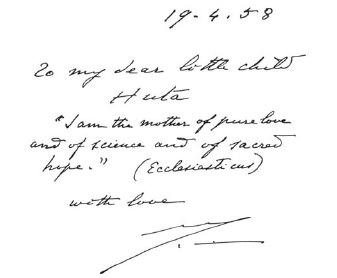 19-4.58
To my dear little child
Huta
"I am the mother of pure love
and of science and of sacred
hope." (Ecclesiasticus)
with love